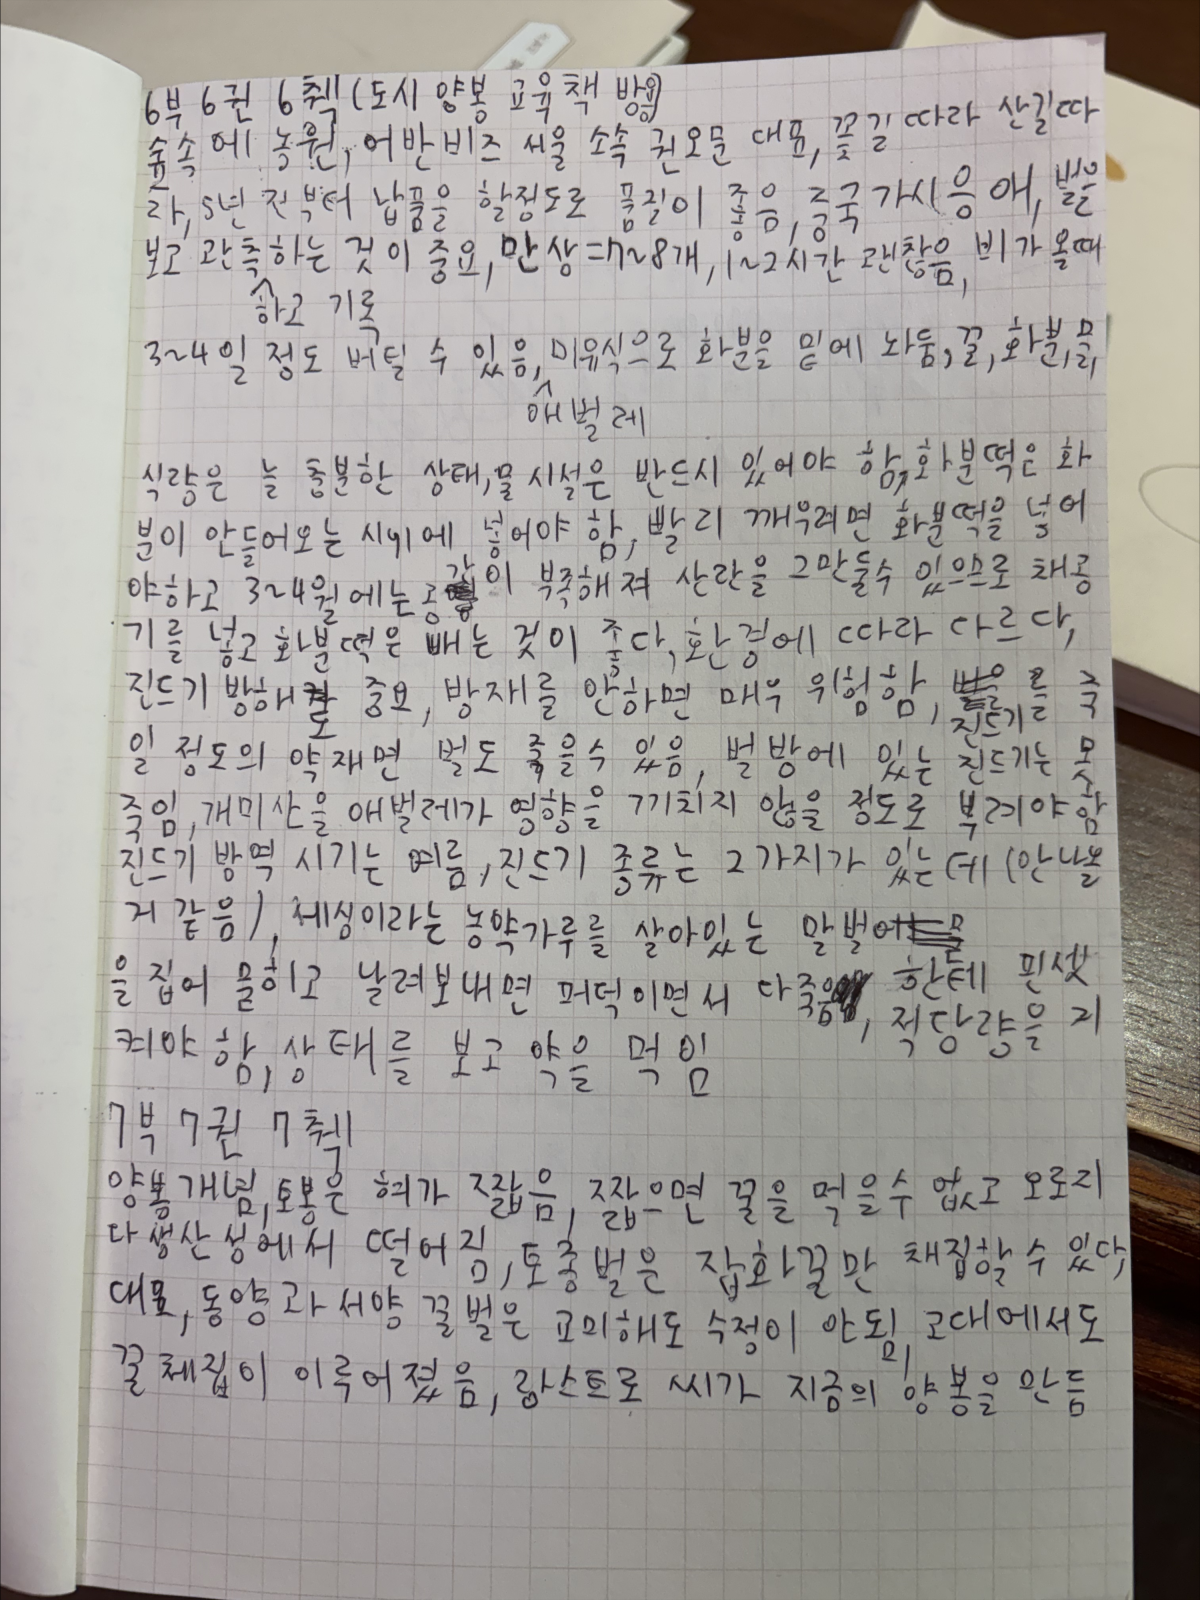 6부 6권 6췍(도시 양봉 교육책 방용)
숲속에 농원, 어반비즈 서울 소속 권오문 대표, 꽃길따라 산길따
라, 5년 전부터 납품을 할정도로 품질이 좋음, 중국가시응애, 벌을
보고 관측하는 것이 중요, 만상=7~8개, 1~2시간 괜찮음, 비가 올때
하고 기록
3~4일 정도 버틸 수 있음, 미유식으로 화분을 밑에 놔둠, 꿀, 화분, 물,
애벌레
식량은 늘 충분한 상태, 물 시설은 반드시 있어야 함, 화분떡은 화
분이 안들어오는 시기에 넣어야 함, 빨리 깨우려면 화분떡을 넣어
야하고 3~4월에는 공간이 부족해져 산란을 그만둘수 있으므로 채공
기를 넣고 화분떡은 빼는 것이 좋다, 환경에 따라 다르다,
진드기 방해도 중요, 방재를 안하면 매우 위험함, 진드기를 죽
일 정도의 약재면 벌도 죽을수 있음, 벌방에 있는 진드기는 못
죽임, 개미산을 애벌레가 영향을 끼치지 않을 정도로 부려야함
진드기 방역 시기는 여름, 진드기 종류는 2가지가 있는데 (안나올
거 같음), 세싱이라는 농약가루를 살아있는 말벌
한테 핀셋
을 집어 물히고 날려보내면 퍼덕이면서 다죽음, 적당량을 지
켜야 함, 상태를 보고 약을 먹임
7부 7권 7췍
양봉개념, 토봉은 혀가 짧음, 짧으면 꿀을 먹을수 없고 오로지
다 생산성에서 떨어짐, 토종벌은 잡화꿀만 채집할 수 있다,
대표, 동양과 서양 꿀벌은 교미해도 수정이 안됨, 고대에서도
꿀 체집이 이루어졌음, 랑스트로 씨가 지금의 양봉을 만듬